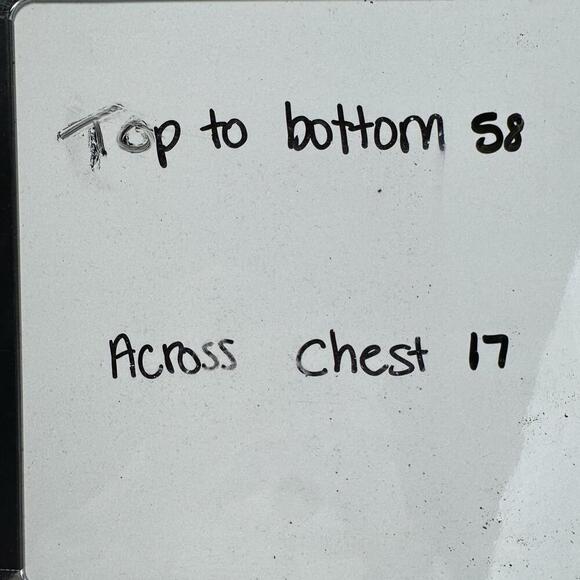 Top to bottom 58
Across chest 17